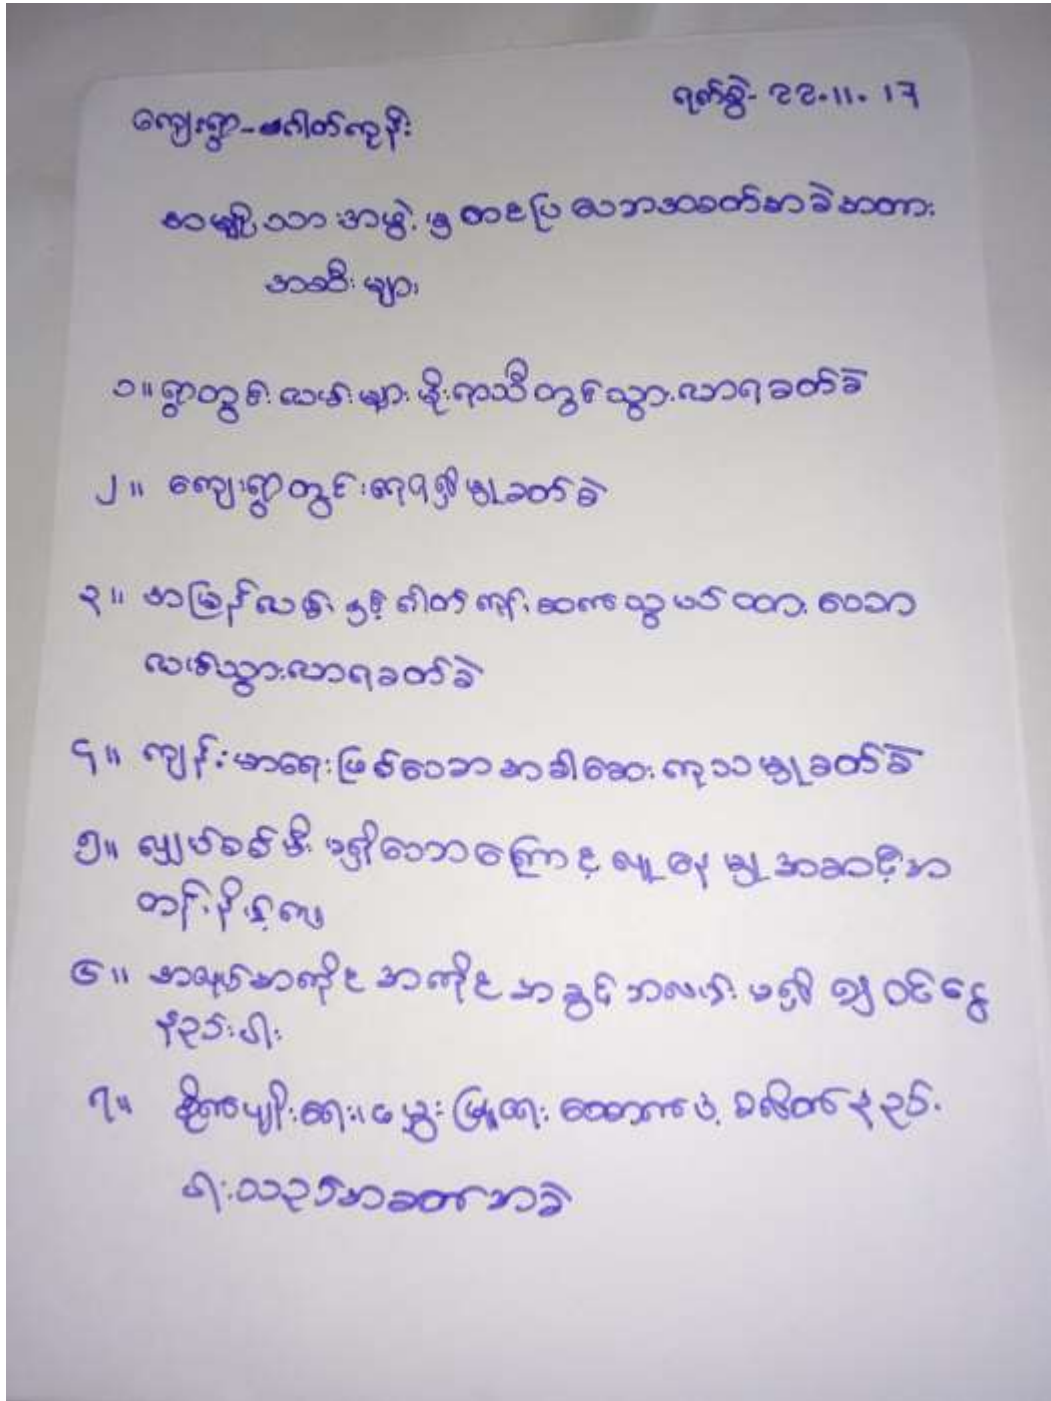 ကျေးရွာ-မဂါတ်ကုန်း
ရက်စွဲ- 22.11.17
အမျိုးသားအဖွဲ့မှ တင်ပြသောအခက်အခဲအတား
အဆီးများ
၁။ ရွာတွင်းလမ်းများမိုးရာသီတွင်သွားလာရခက်ခဲ
၂။ ကျေးရွာတွင်းရေရရှိမှုခက်ခဲ
၃။ အမြန်လမ်းနှင့်ဂါတ်ကုန်းဆက်သွယ်ထားသော
လမ်းသွားလာရခက်ခဲ
၄။ ကျန်းမာရေးဖြစ်သောအခါဆေးကုသမှုခက်ခဲ
၅။ လျှပ်စစ်မီးမရှိသောကြောင့်လူနေမှုအဆင့်အ
တန်းနိမ့်ကျ
၆။ အလုပ်အကိုင်အကိုင်အခွင့်အလမ်းမရှိ၍ဝင်ငွေ
နည်းပါး
၇။ စိုက်ပျိုးရေး၊မွေးမြူရေးထောက်ပံ့ခလိတ်နည်း
ပါးသည့်အခက်အခဲ